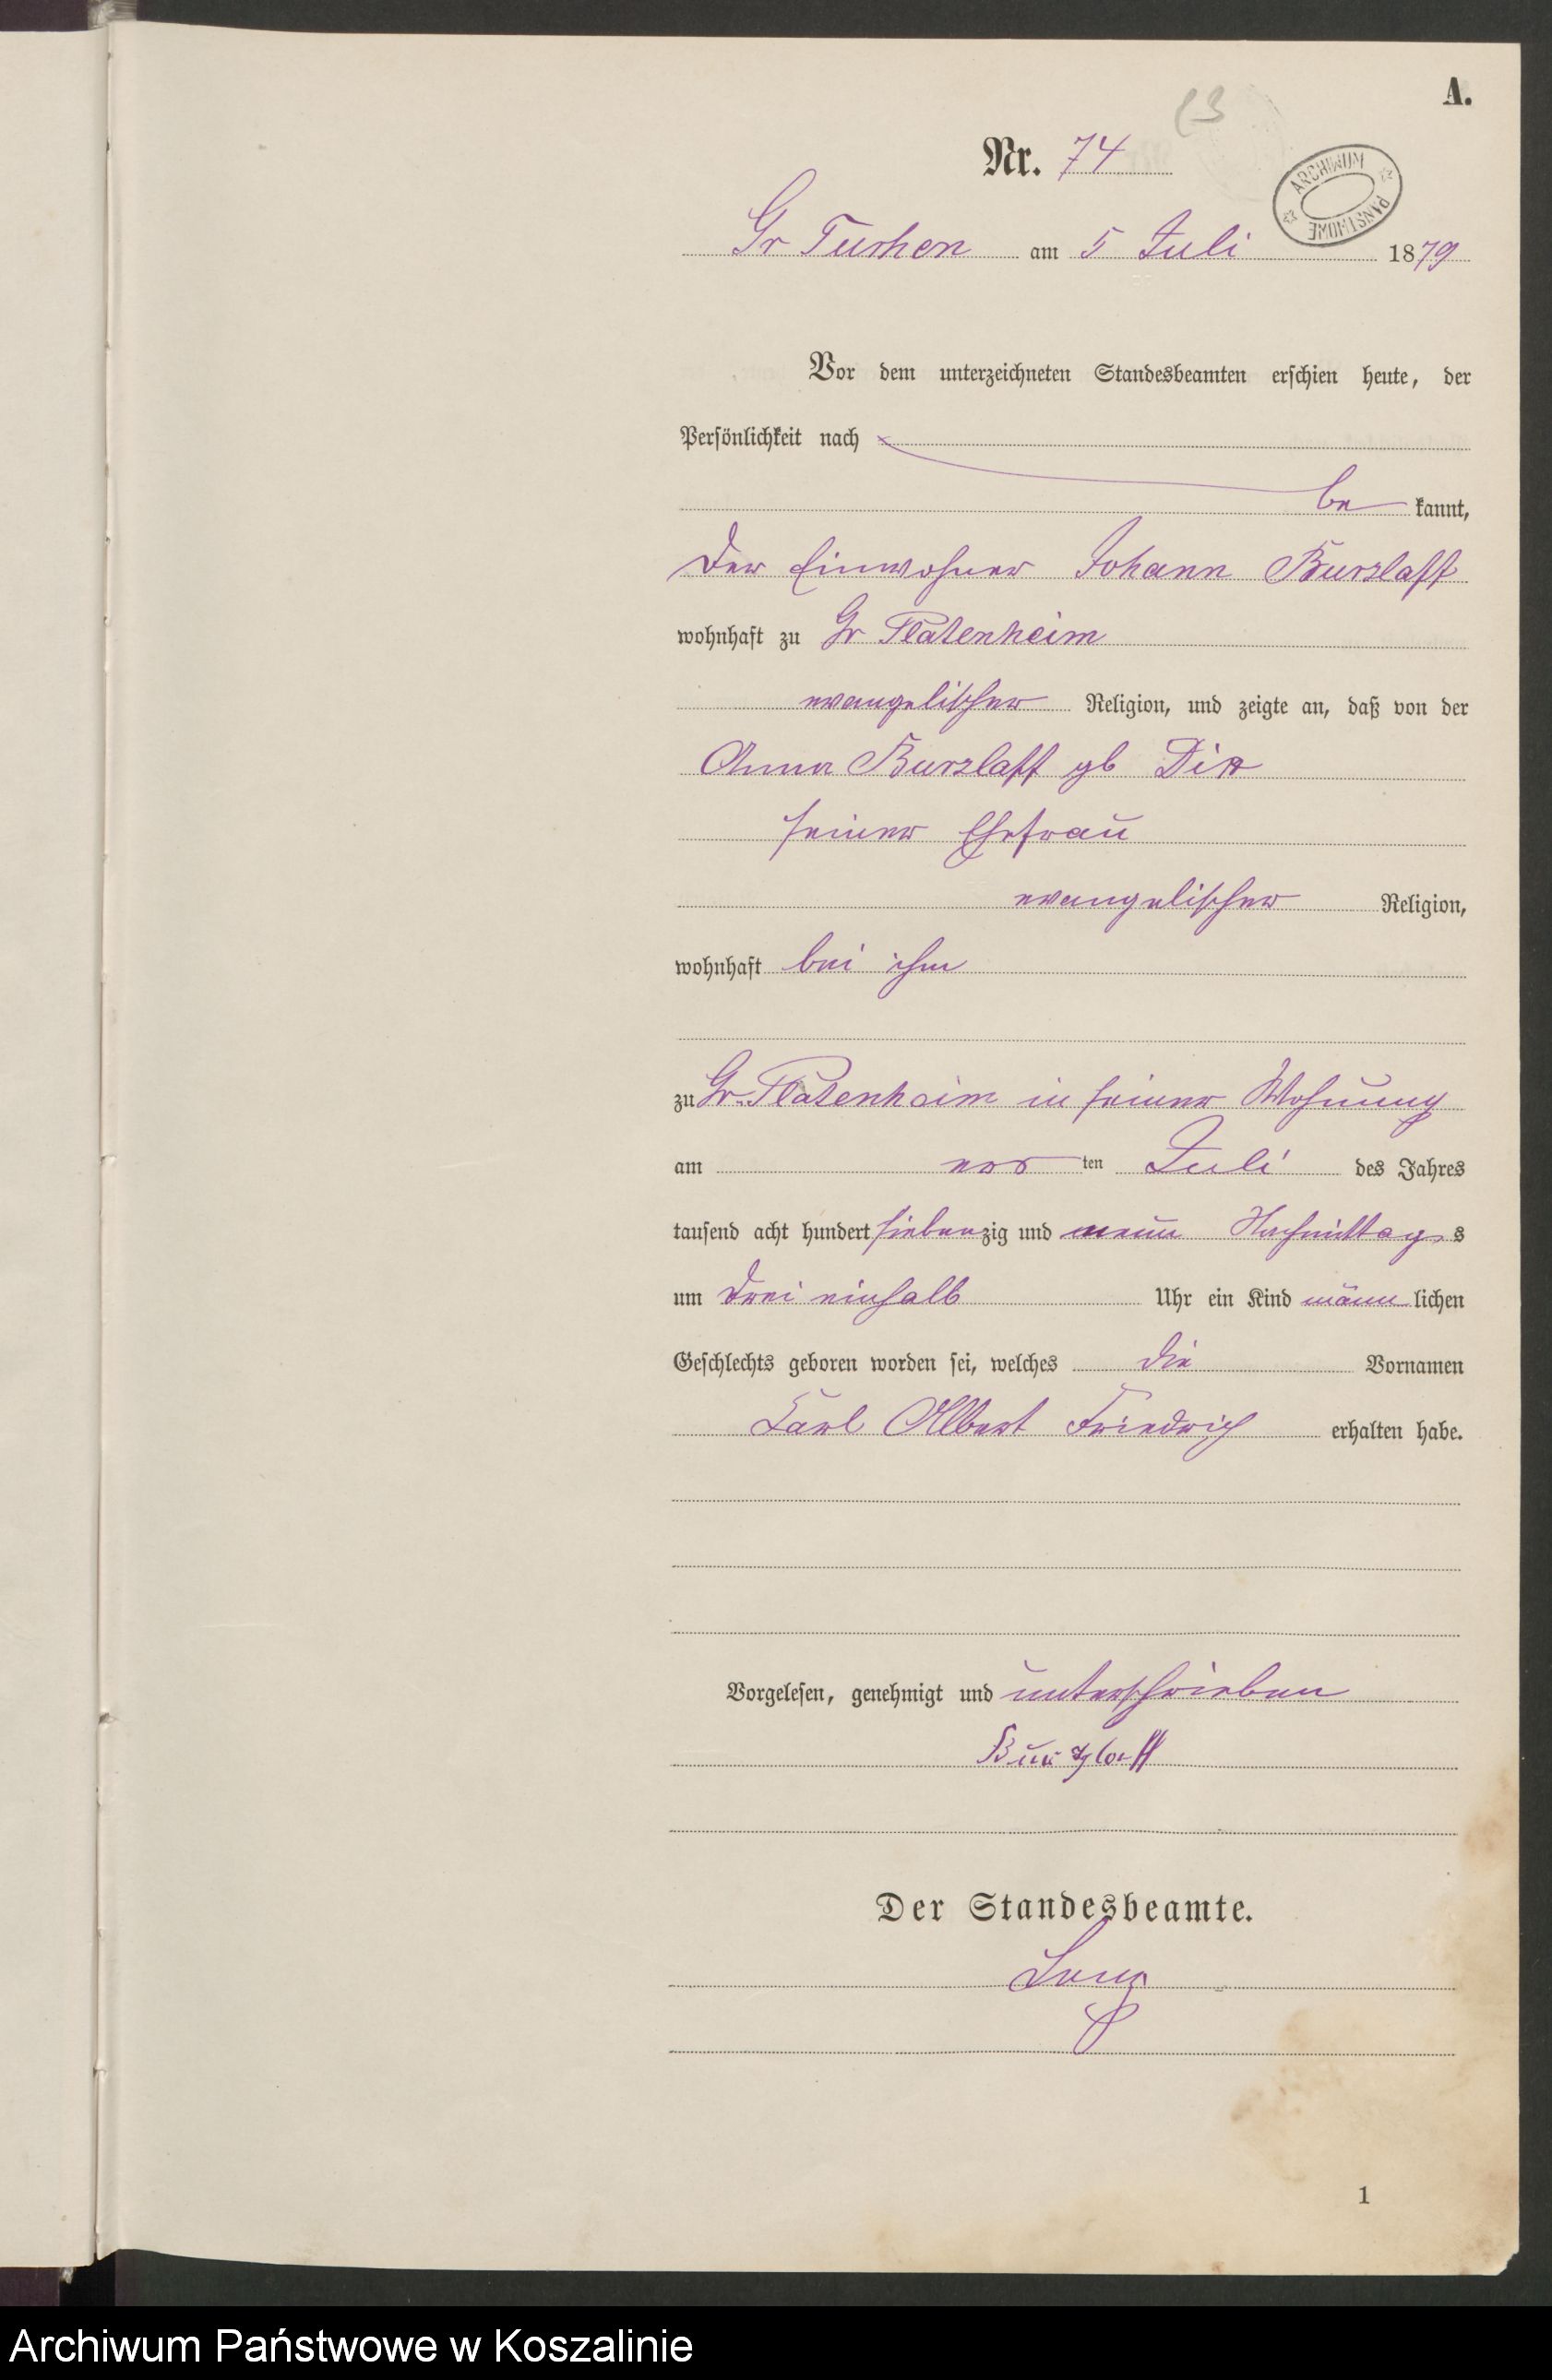 A.
13
Nr. 74
ARCHIWUM PAŃSTWOWE
Gr Tuchen am 5 Juli 1879
Vor dem unterzeichneten Standesbeamten erschien heute, der
Persönlichkeit nach
be kannt,
der Einwohner Johann Burzlaff
wohnhaft zu Gr Platenheim
evangelischer Religion, und zeigte an, daß von der
Anna Burzlaff gb
seiner Ehefrau
evangelischer Religion,
wohnhaft bei ihm
zu Gr. Platenheim in seiner Wohnung
am ten Juli des Jahres
tausend acht hundert siebenzig und neun Nachmittags
um drei einhalb Uhr ein Kind männlichen
Geschlechts geboren worden sei, welches die Vornamen
Carl Albert Friedrich erhalten habe.
Vorgelesen, genehmigt und unterschrieben
Burzlaff
Der Standesbeamte.
1
Archiwum Państwowe w Koszalinie